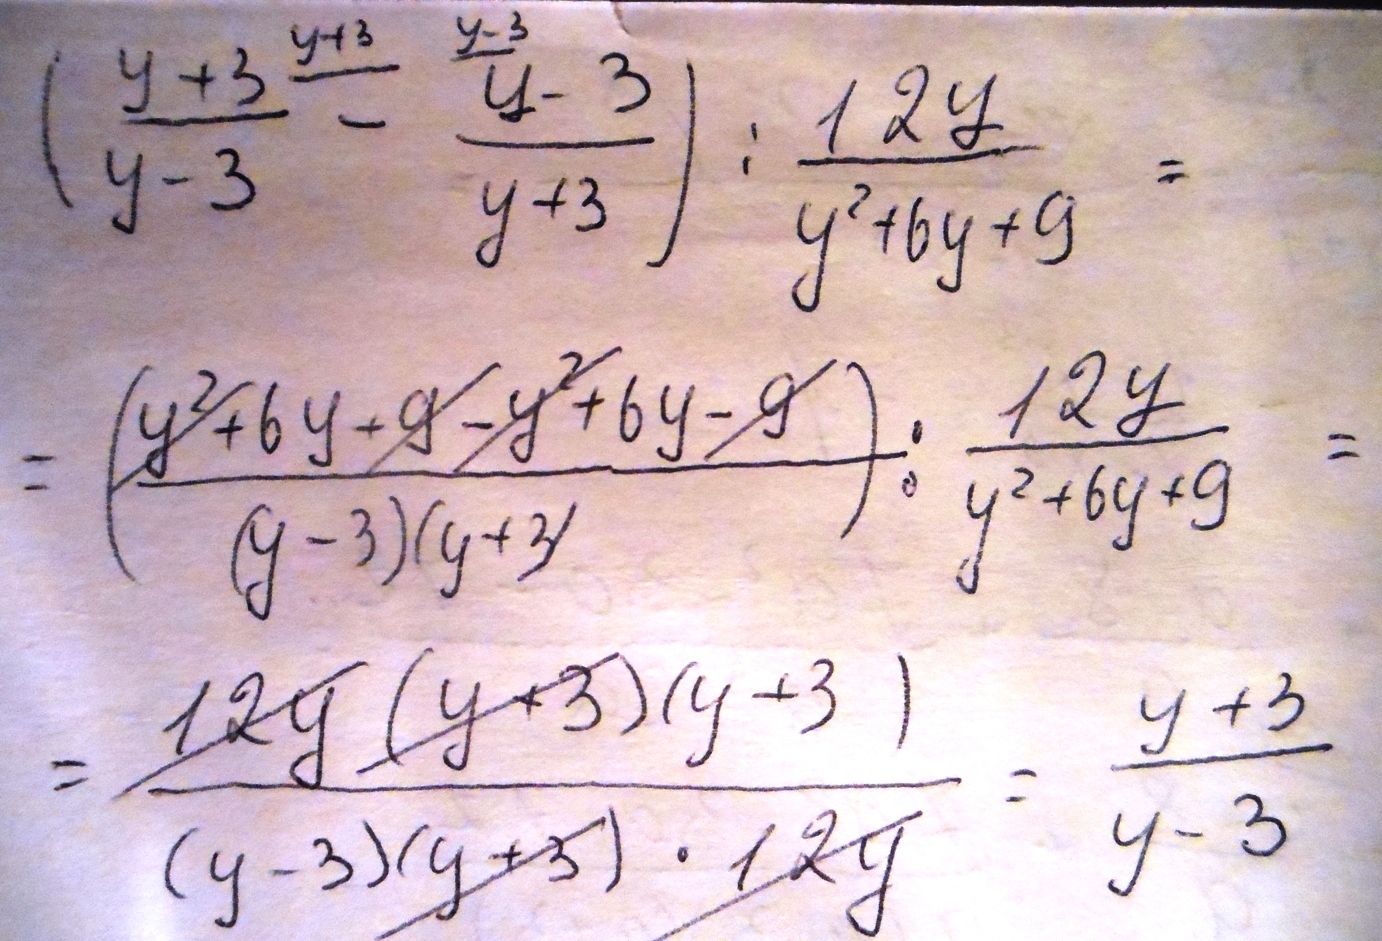 ( y+3/y-3 ^y+3 - ^y-3 y-3/y+3 ) : 12y/y²+6y+9 =
= ( y²+6y+9-y²+6y-9/(y-3)(y+3) ) : 12y/y²+6y+9 =
= 12y(y+3)(y+3)/(y-3)(y+3)·12y = y+3/y-3